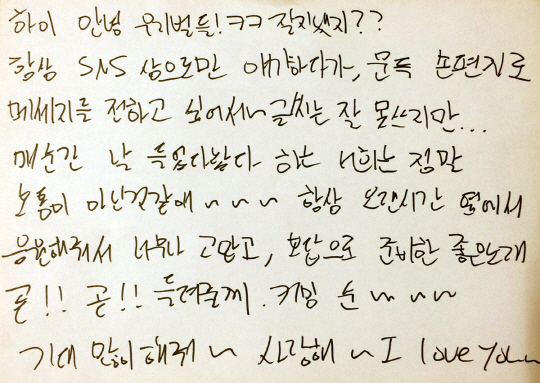 하이 안녕 우리별들! ㅋㅋ 잘지냈지??
항상 SNS 상으로만 얘기하다가, 문득 손편지로
메세지를 전하고 싶어서~ 글씨는 잘 못쓰지만...
매순간 날 들었다놨다 하는 너희는 정말
보통이 아닌것같애 ~ ~ ~ 항상 오랜시간 옆에서
응원해줘서 너무나 고맙고, 보답으로 준비한 좋은노래
곧!! 곧!! 들려줄께. 커밍 순 ~ ~ ~
기대 많이해줘 ~ 사랑해 ~ I love you~